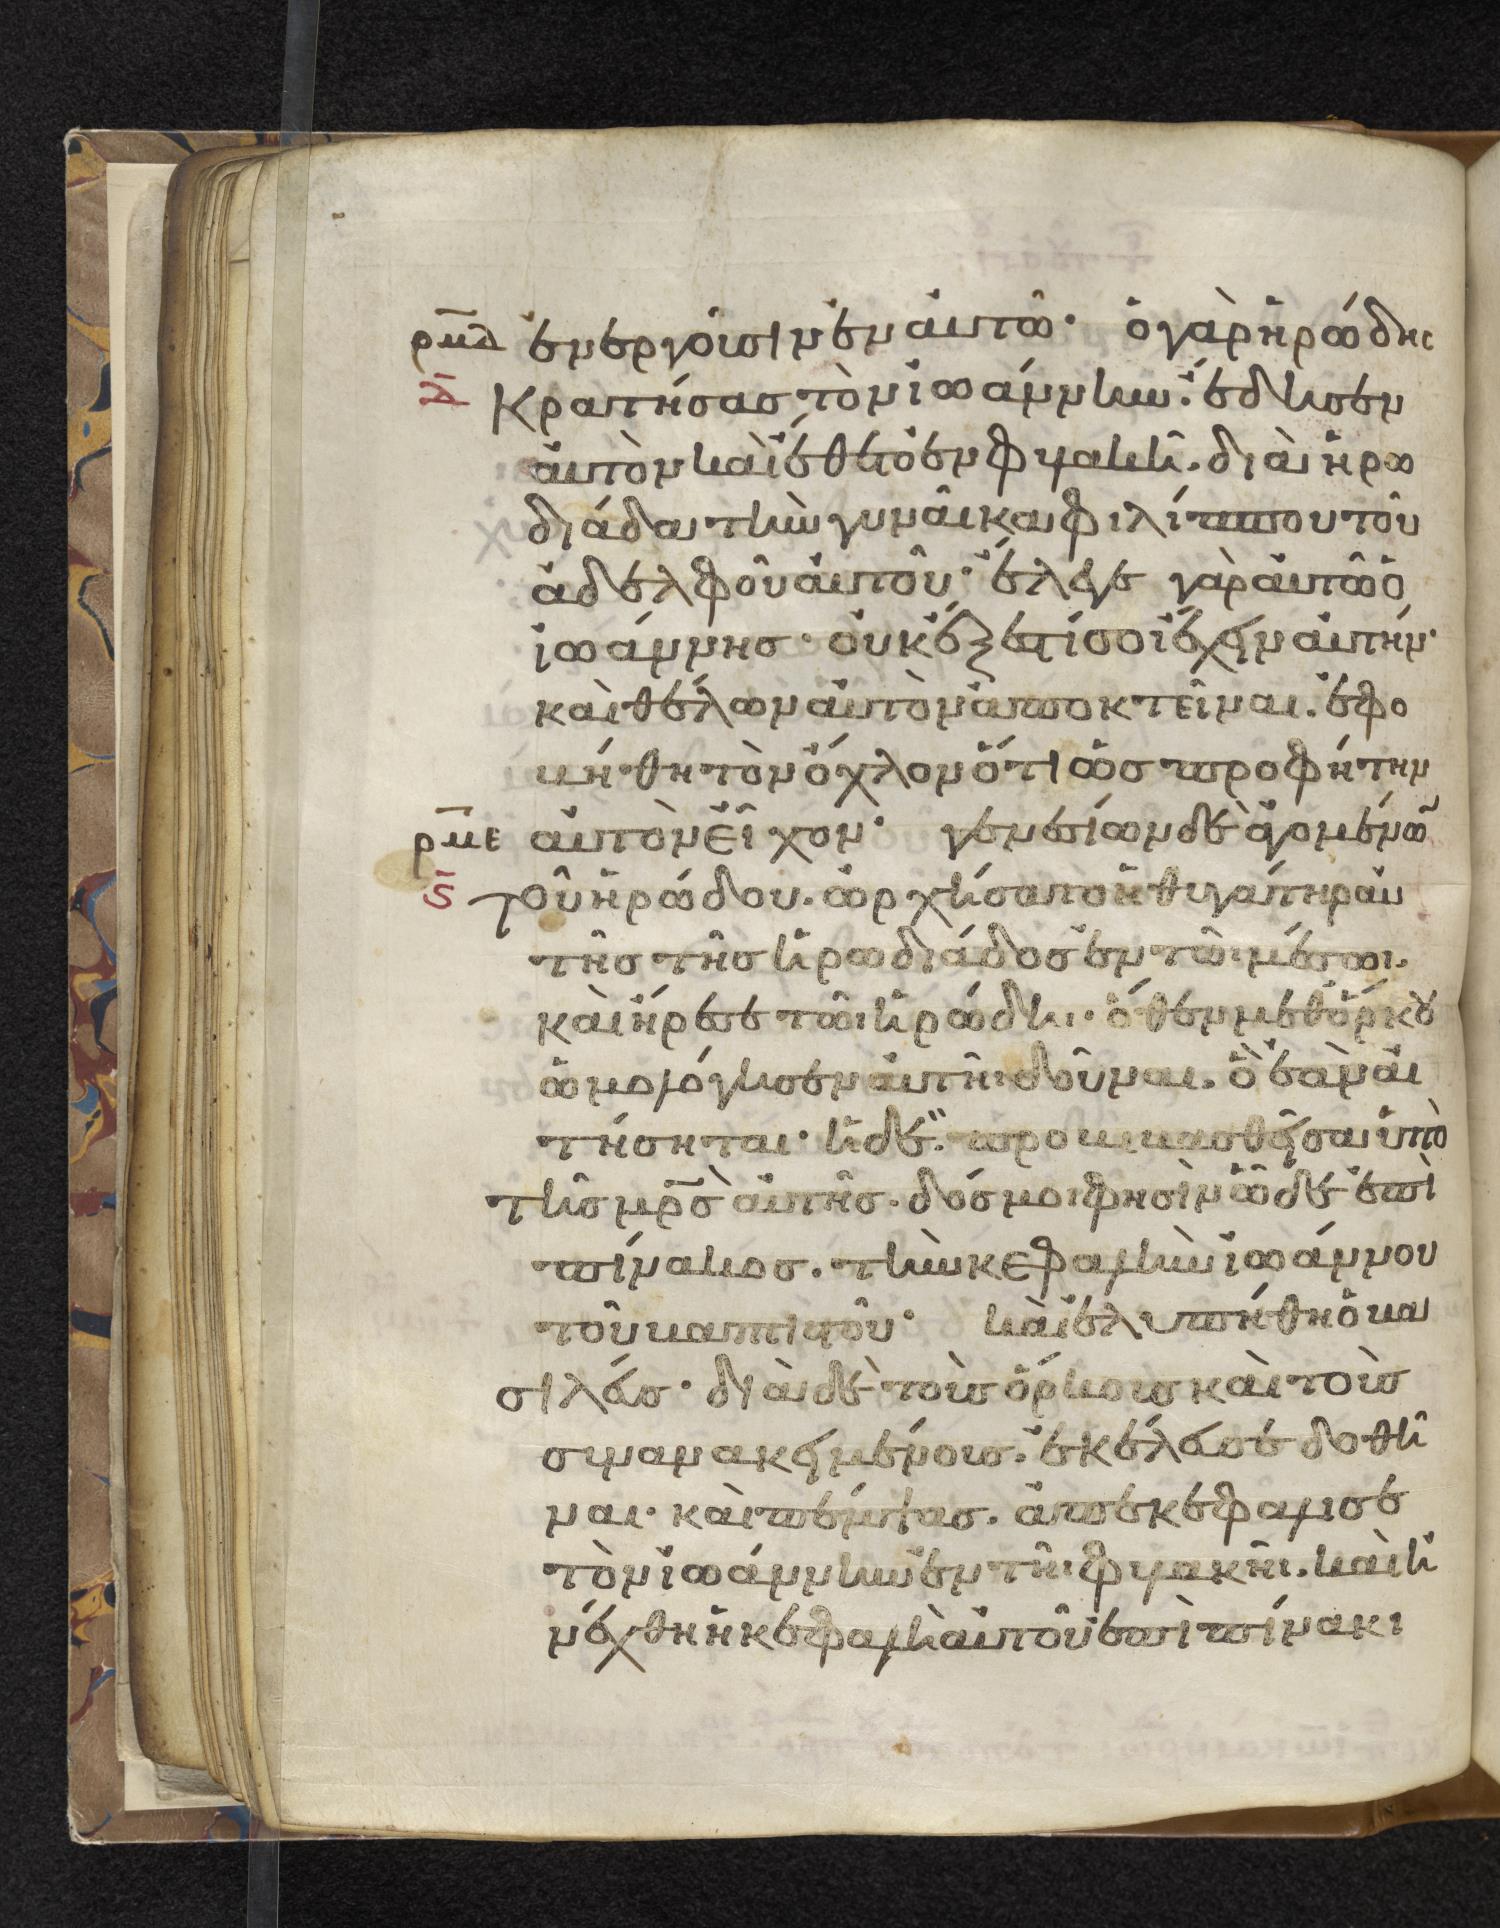 ρμδ ἐνεργοῦσιν ἐν αὐτῶ· ὁ γὰρ ἡρώδης
κρατήσας τὸν ἰωάννην. ἔδησεν
αὐτὸν καὶ ἔθετο ἐν φυλακῆ. διὰ ἡρω
διάδα τὴν γυναῖκα φιλίππου τοῦ
ἀδελφοῦ αὐτοῦ· ἔλεγε γὰρ αὐτῶ ὁ
ἰωάννης· οὐκ ἔξεστί σοι ἔχειν αὐτήν·
καὶ θέλων αὐτὸν ἀποκτεῖναι. ἐφο
βήθη τὸν ὄχλον ὅτι ὡς προφήτην
ρμε αὐτὸν εἶχον· γενεσίων δὲ ἀγομένων
ς τοῦ ἡρώδου. ὠρχήσατο ἡ θυγάτηρ αὐ
τῆς τῆς ἡρωδιάδος ἐν τῶι μέσωι.
καὶ ἤρεσε τῶι ἡρώδηι· ὅθεν μεθ ὅρκου
ὡμολόγησεν αὐτῆι δοῦναι. ὃ ἐὰν αἰ
τήσηται· ἡ δὲ προβιβασθεῖσα ὑπὸ
τῆς μρς αὐτῆς. δός μοι φησὶν ὧδε ἐπὶ
πίνακος. τὴν κεφαλὴν ἰωάννου
τοῦ βαπτιστοῦ· καὶ ἐλυπήθη ὁ βα
σιλεύς· διὰ δὲ τοὺς ὅρκους καὶ τοὺς
συνανακειμένους. ἐκέλευσε δοθῆ
ναι· καὶ πέμψας. ἀπεκεφάλισε
τὸν ἰωάννην ἐν τῆι φυλακῆι. καὶ ἠ
νέχθη ἡ κεφαλὴ αὐτοῦ ἐπὶ πίνακι